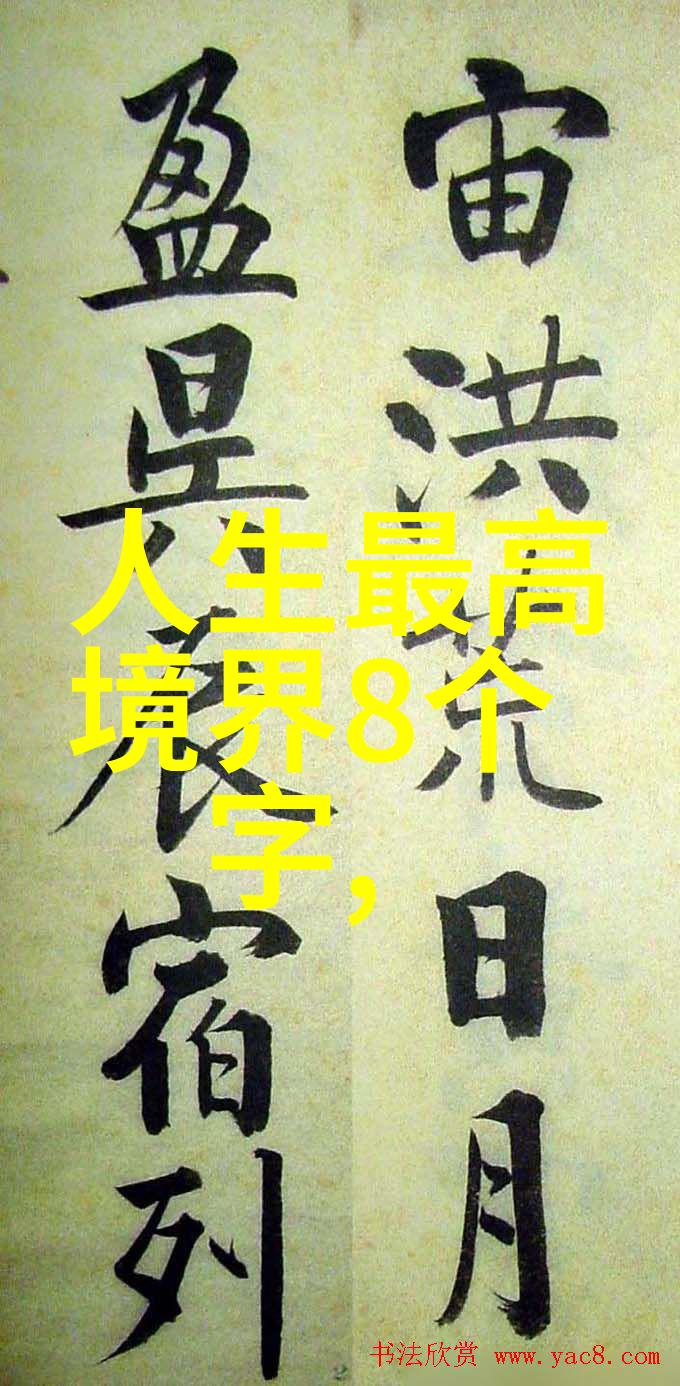 宙洪荒日月
盈昃辰宿列
人生最高
境界8个
字，
书法欣赏 www.yac8.com